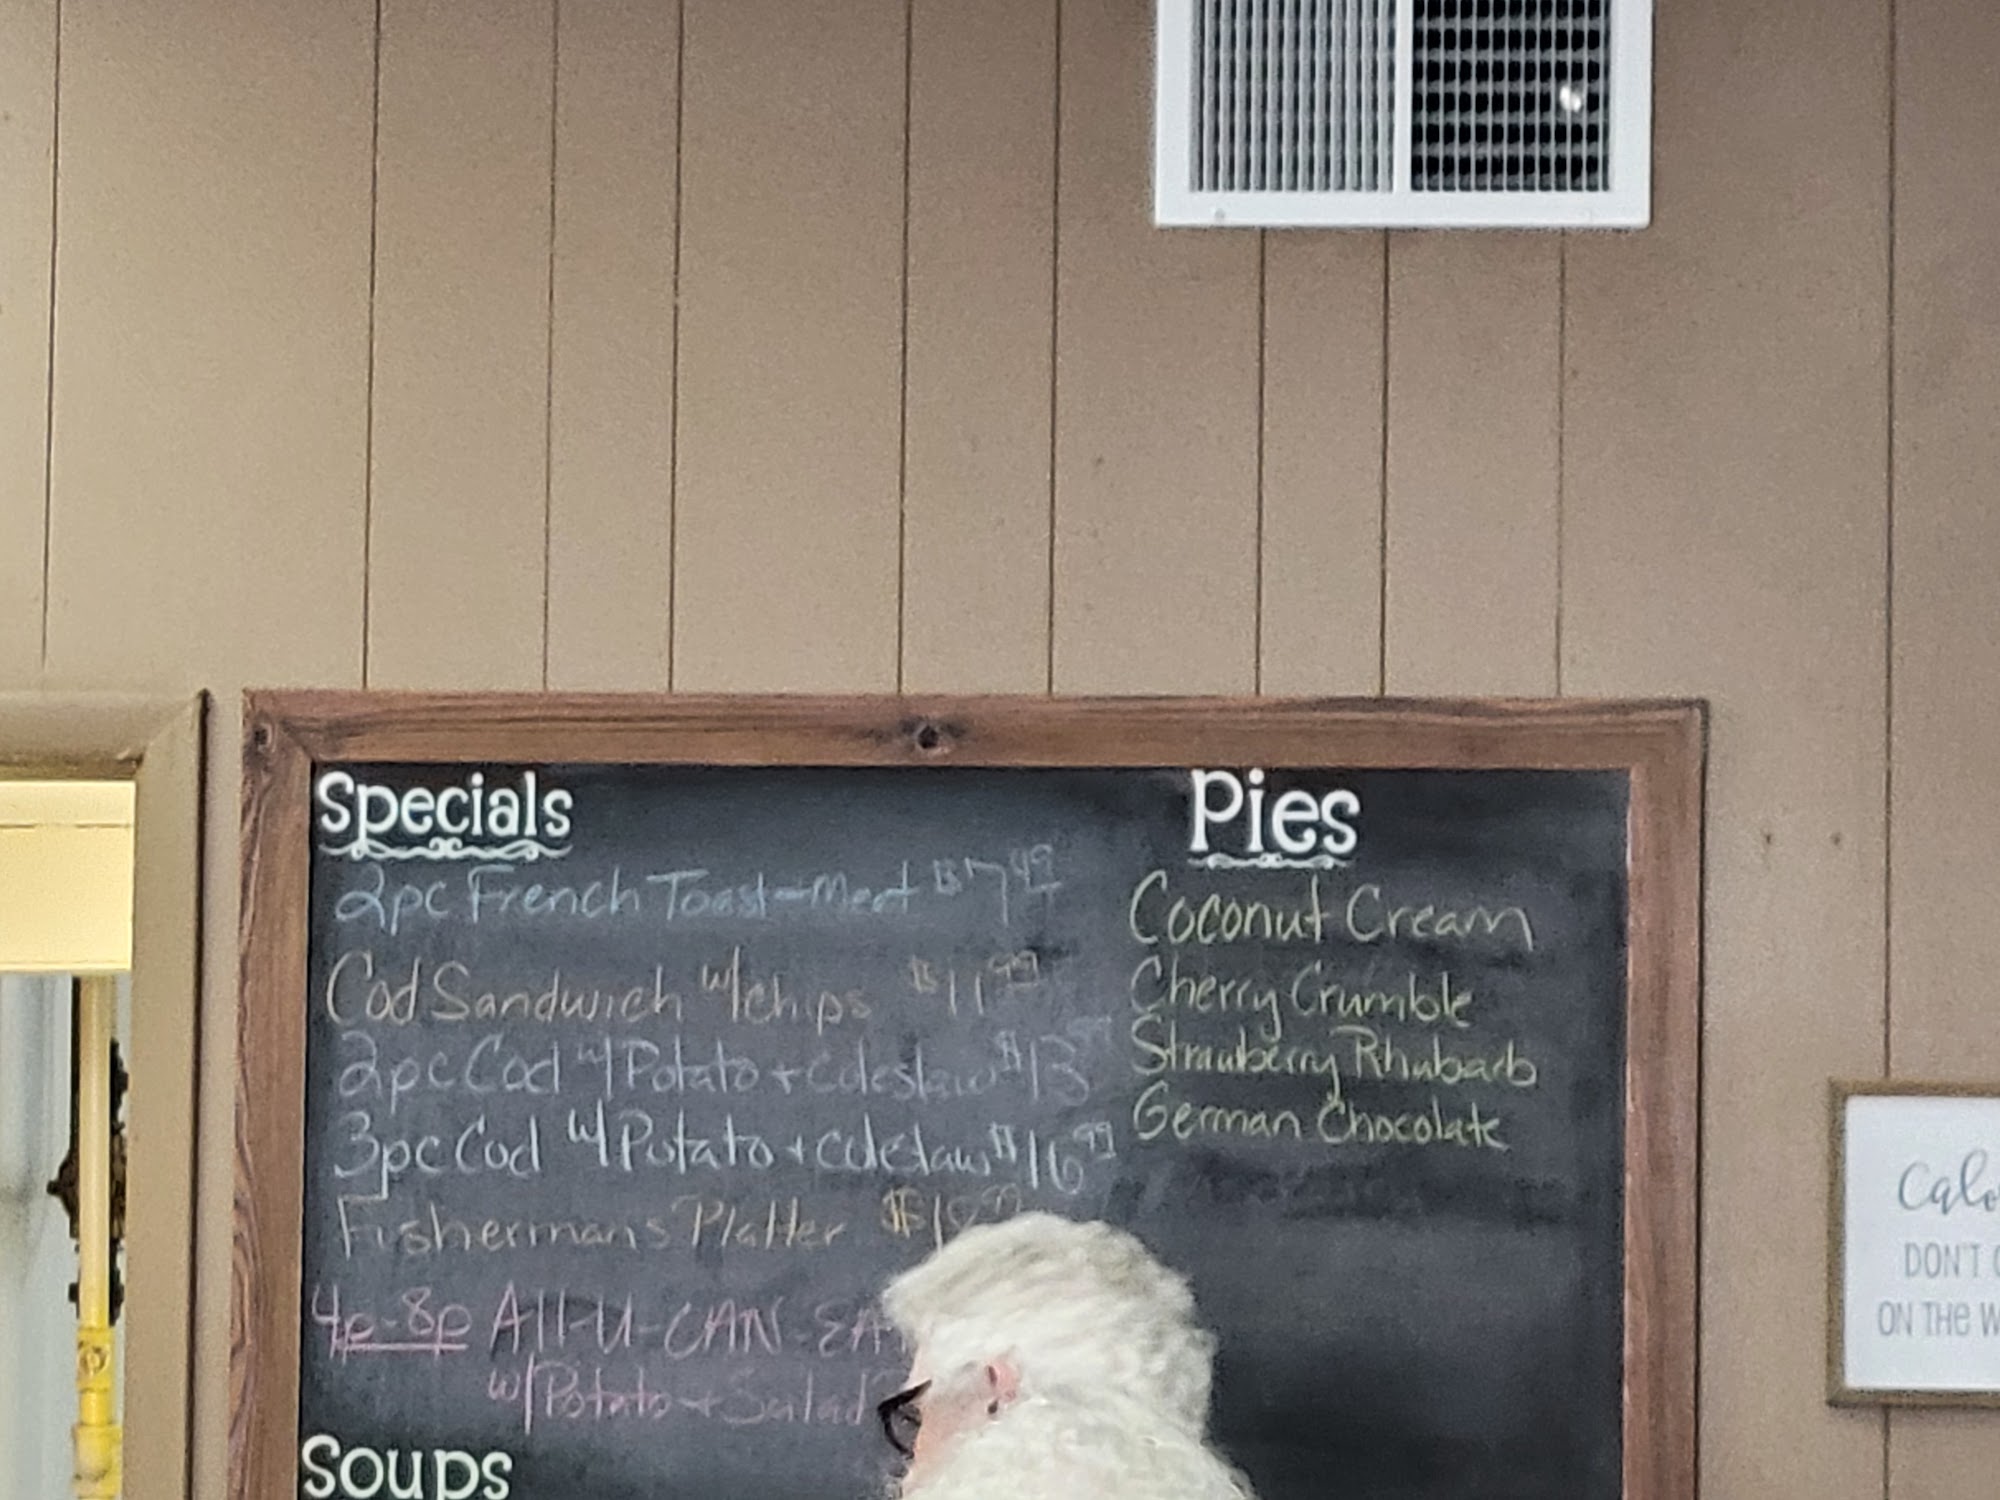 Specials
2pc French Toast-Meat $7.49
Cod Sandwich w/chips $11.99
2pc Cod w/Potato + Coleslaw $13
3pc Cod w/Potato + Coleslaw $16.99
Fishermans Platter
4p-8p All-U-CAN-EA
w/Potato + Salad
Soups
Pies
Coconut Cream
Cherry Crumble
Strawberry Rhubarb
German Chocolate
DON'T
ON THE W